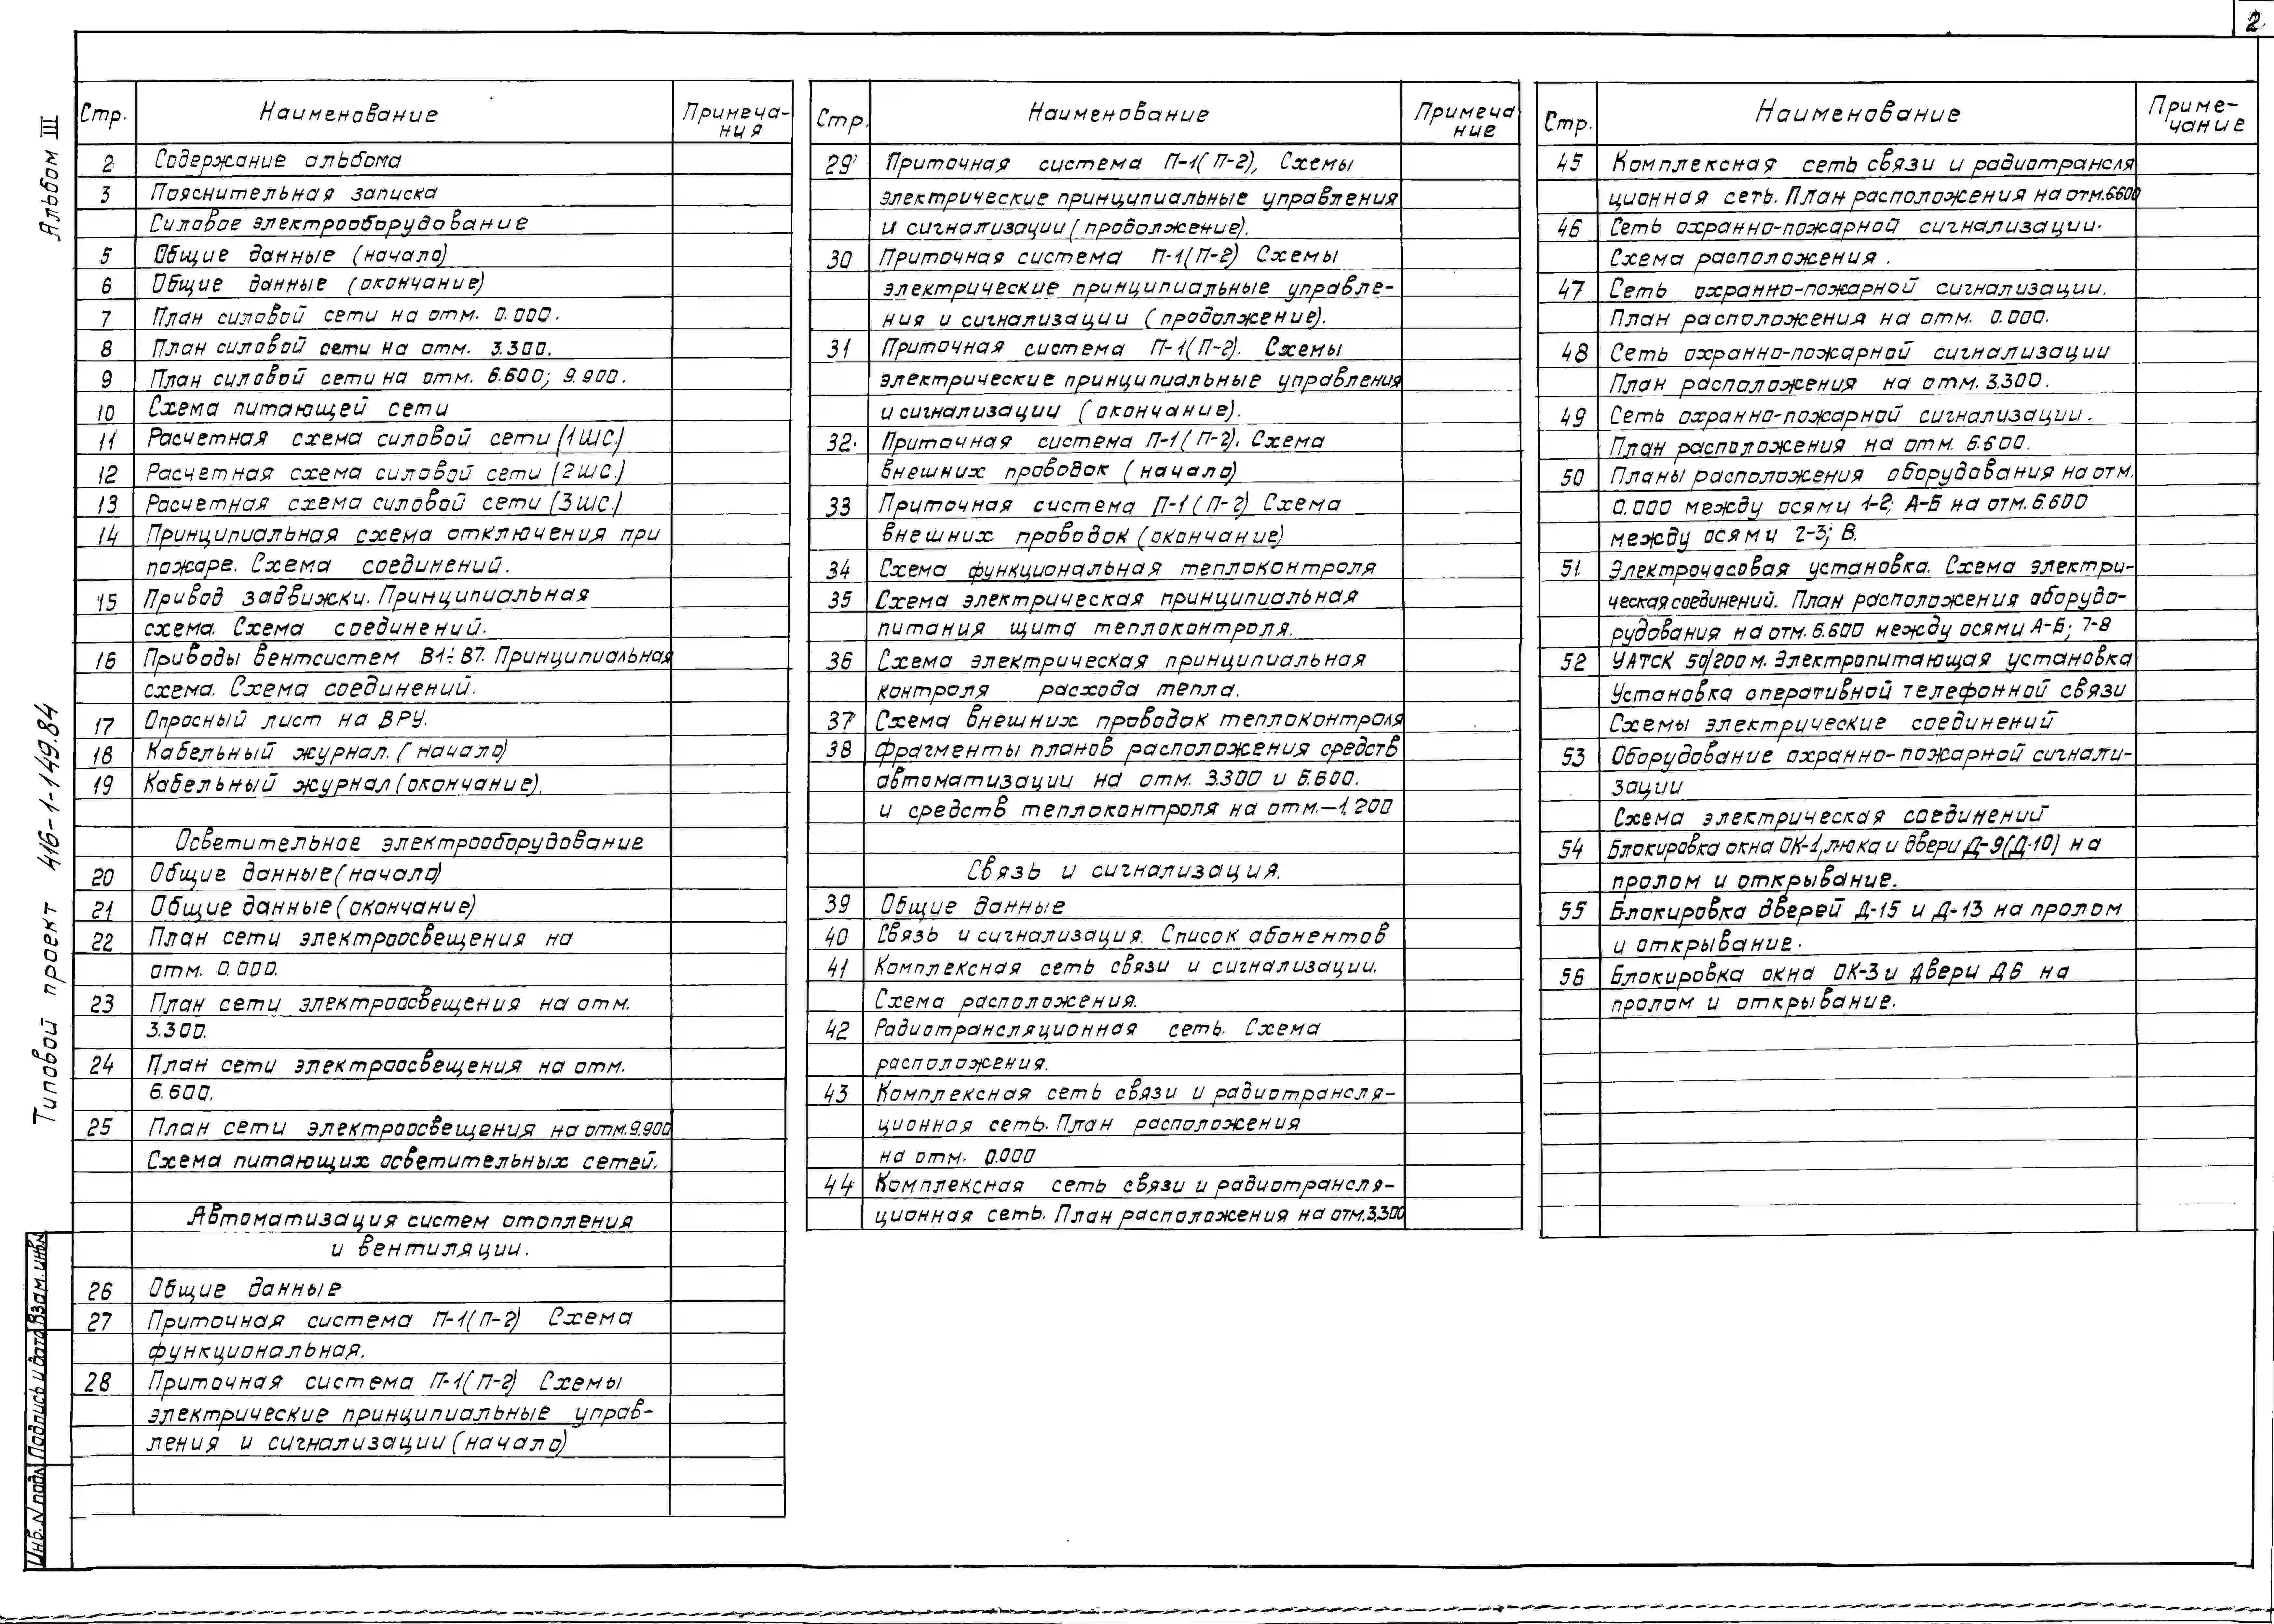 2.
Альбом III
Типовой проект 416-1-149.84
Инв.N подл. Подпись и дата Взам.инв.N
Стр. Наименование Примеча-
ния
2 Содержание альбома
3 Пояснительная записка
Силовое электрооборудование
5 Общие данные (начало)
6 Общие данные (окончание)
7 План силовой сети на отм. 0.000.
8 План силовой сети на отм. 3.300.
9 План силовой сети на отм. 6.600; 9.900.
10 Схема питающей сети
11 Расчетная схема силовой сети (1ШС.)
12 Расчетная схема силовой сети (2ШС.)
13 Расчетная схема силовой сети (3ШС.)
14 Принципиальная схема отключения при
пожаре. Схема соединений.
15 Привод задвижки. Принципиальная
схема. Схема соединений.
16 Приводы вентсистем В1÷В7. Принципиальная
схема. Схема соединений.
17 Опросный лист на ВРУ.
18 Кабельный журнал. (начало)
19 Кабельный журнал (окончание).
Осветительное электрооборудование
20 Общие данные (начало)
21 Общие данные (окончание)
22 План сети электроосвещения на
отм. 0.000.
23 План сети электроосвещения на отм.
3.300.
24 План сети электроосвещения на отм.
6.600.
25 План сети электроосвещения на отм.9.900
Схема питающих осветительных сетей.
Автоматизация систем отопления
и вентиляции.
26 Общие данные
27 Приточная система П-1(П-2) Схема
функциональная.
28 Приточная система П-1(П-2) Схемы
электрические принципиальные управ-
ления и сигнализации (начало)
Стр. Наименование Примеча
ние
29 Приточная система П-1(П-2), Схемы
электрические принципиальные управления
и сигнализации (продолжение).
30 Приточная система П-1(П-2) Схемы
электрические принципиальные управле-
ния и сигнализации (продолжение).
31 Приточная система П-1(П-2). Схемы
электрические принципиальные управления
и сигнализации (окончание).
32. Приточная система П-1(П-2). Схема
внешних проводок (начало)
33 Приточная система П-1(П-2) Схема
внешних проводок (окончание)
34 Схема функциональная теплоконтроля
35 Схема электрическая принципиальная
питания щита теплоконтроля.
36 Схема электрическая принципиальная
контроля расхода тепла.
37 Схема внешних проводок теплоконтроля
38 Фрагменты планов расположения средств
автоматизации на отм. 3.300 и 6.600.
и средств теплоконтроля на отм.-1.200
Связь и сигнализация.
39 Общие данные
40 Связь и сигнализация. Список абонентов
41 Комплексная сеть связи и сигнализации.
Схема расположения.
42 Радиотрансляционная сеть. Схема
расположения.
43 Комплексная сеть связи и радиотрансля-
ционная сеть. План расположения
на отм. 0.000
44 Комплексная сеть связи и радиотрансля-
ционная сеть. План расположения на отм.3,300
Стр. Наименование Приме-
чание
45 Комплексная сеть связи и радиотрансля
ционная сеть. План расположения на отм.6.600
46 Сеть охранно-пожарной сигнализации.
Схема расположения.
47 Сеть охранно-пожарной сигнализации.
План расположения на отм. 0.000.
48 Сеть охранно-пожарной сигнализации
План расположения на отм. 3.300.
49 Сеть охранно-пожарной сигнализации.
План расположения на отм. 6.600.
50 Планы расположения оборудования на отм.
0.000 между осями 1-2; А-Б на отм.6.600
между осями 2-3; В.
51 Электрочасовая установка. Схема электри-
ческая соединений. План расположения оборудо-
рудования на отм. 6.600 между осями А-Б; 7-8
52 УАТСК 50/200м. Электропитающая установка
Установка оперативной телефонной связи
Схемы электрические соединений
53 Оборудование охранно-пожарной сигнали-
зации
Схема электрическая соединений
54 Блокировка окна ОК-1, люка и двери Д-9(Д-10) на
пролом и открывание.
55 Блокировка дверей Д-15 и Д-13 на пролом
и открывание.
56 Блокировка окна ОК-3 и двери Д6 на
пролом и открывание.